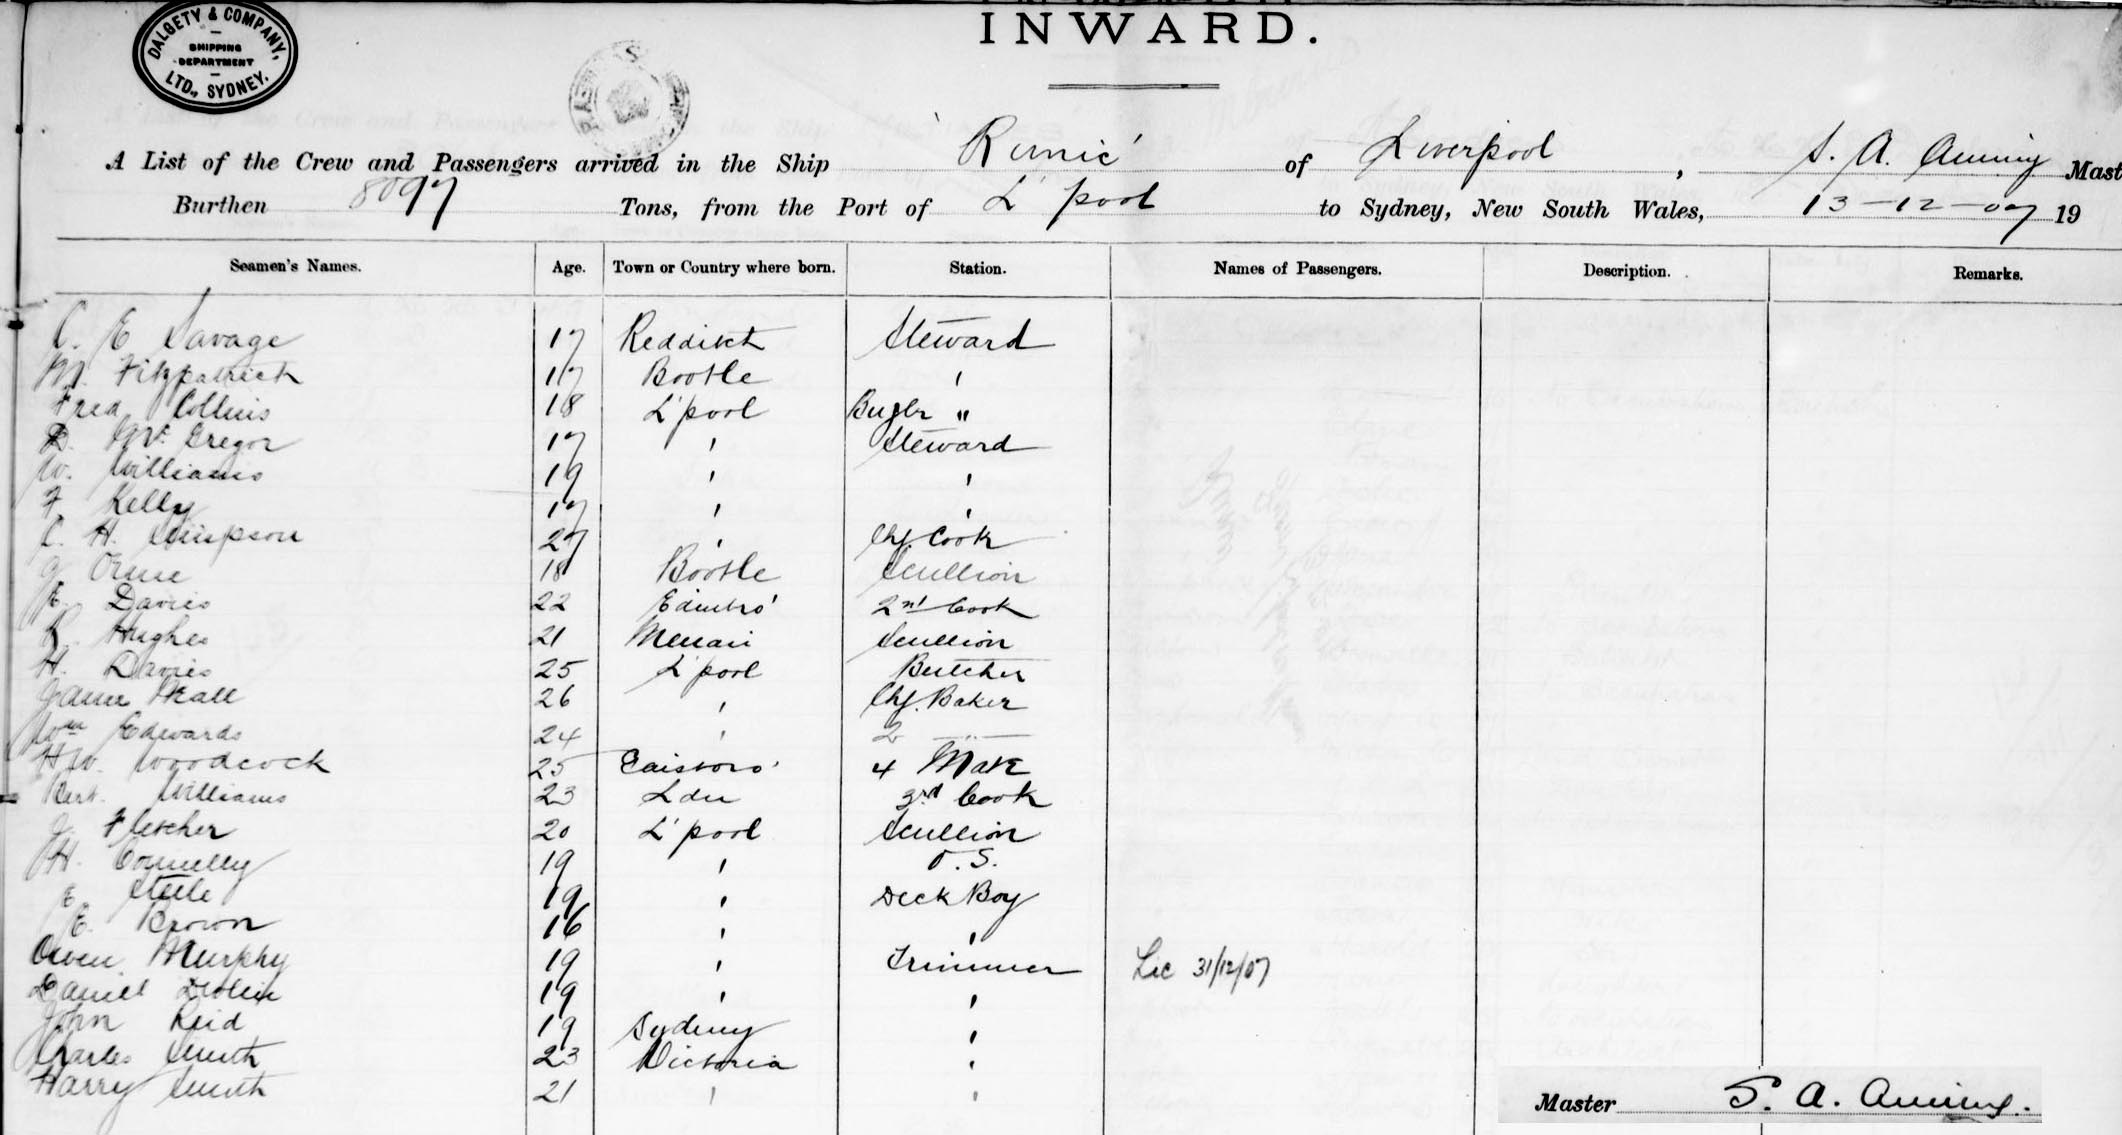 DALGETY & COMPANY,
SHIPPING
DEPARTMENT
LTD., SYDNEY.
INWARD.
A List of the Crew and Passengers arrived in the Ship "Runic" of Liverpool, Mast
Burthen 8097 Tons, from the Port of L'pool to Sydney, New South Wales, 13-12-07 19
Seamen's Names. Age. Town or Country where born. Station. Names of Passengers. Description. Remarks.
C. E Savage 17 Redditch Steward
M. Fitzpatrick 17 Bootle '
Fred Collins 18 L'pool Bugler "
D. McGregor 17 ' Steward
W. Williams 19 ' '
F Kelly 17 ' '
C. H. Simpson 27 ' Chf. Cook
G Orme 18 Bootle Scullion
E. Davies 22 Edinbro' 2nd Cook
R. Hughes 21 Menai Scullion
H. Davies 25 L'pool Butcher
26 ' Chf. Baker
Wm Edwards 24 ' 2 "
H W. Woodcock 25 4 Mate
Bert. Williams 23 Ldn 3rd Cook
J. Fletcher 20 L'pool Scullion
H. Connelly 19 ' O.S.
E Steele 19 ' Deck Boy
E. Brown 16 ' '
Owen Murphy 19 ' Trimmer Lic 31/12/07
Daniel 19 ' '
John Reid 19 Sydney '
Charles Smith 23 Victoria '
Harry Smith 21 ' '
Master S. A.